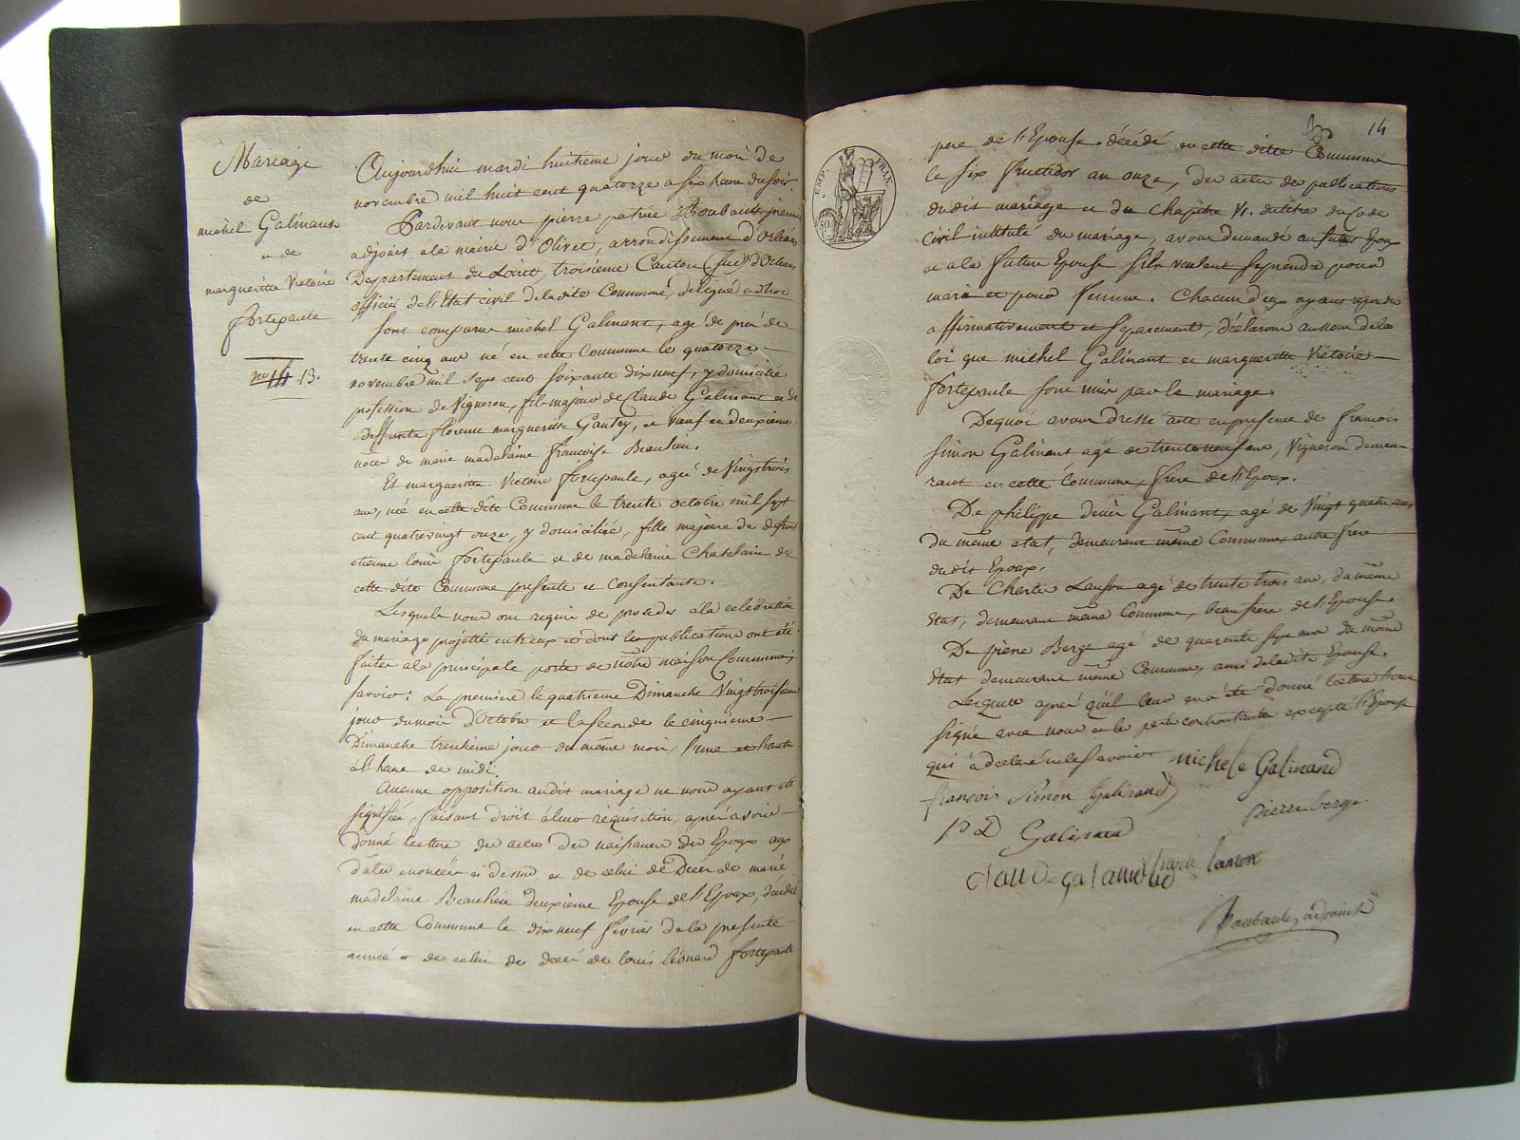 Mariage
de
michel Galinant
et de
margueritte Victoire
fortepaule
nro 13.
Aujourdhui mardi huitieme jour du mois de
novembre mil huit cent quatorze a six heure du soir
Pardevant nous pierre patrice Boubault
adjoint a la mairie d'Olivet, arrondissement d'Orléans
Departement du Loiret troisieme Canton (sud) d'Orleans
officier de l'Etat civil de ladite Commune, délégué
sont comparus michel Galinant, agé de près de
trente cinq ans né en cette Commune le quatorze
novembre mil sept cent soixante dix neuf, y domicilié
profession de Vigneron, fils majeur de Claude Galinant et de
deffunte florence margueritte Gautry, et veuf en deuxieme
nôce de marie madelaine françoise Beaulieu.
Et margueritte Victoire fortepaule, agée de Vingt trois
ans, née en cette dite Commune le trente octobre mil sept
cent quatre vingt onze, y domiciliée, fille majeure de defunt
etienne louis fortepaule et de madelaine Chatelain de
cette dite Commune presente et Consentante.
Lesquels nous ont requis de proceder a la celebration
du mariage projetté entre eux et dont les publications ont été
faites a la principale porte de notre maison Commune;
savoir: La premiere le quatrieme Dimanche Vingt troisieme
jour du mois d'Octobre et la seconde le cinquieme
Dimanche trentieme jour du même mois, l'une et l'autre
à l'heure de midi.
Aucune opposition audit mariage ne nous ayant été
signifiée, faisant droit à leur réquisition, après avoir
donné lecture des actes de naissance des Epoux
datés enoncées ci dessus et de celui de Decès de marie
madelaine deuxieme Epouse de l'Epoux, décédée
en cette Commune le dix neuf fevrier de la presente
année et de celui de decès de louis léonard fortepaule
14
EMP. FRAN.
pere de l'Epouse décédé en cette ditte Commune
le six fructidor an onze, des actes de publications
dudit mariage et du Chapitre VI. du titre du Code
Civil intitulé du mariage, avons demandé au futur Epoux
et a la future Epouse s'ils veulent se prendre pour
mari et pour femme. Chacun d'eux ayant repondu
affirmativement et separement, déclarons au nom de la
loi que michel Galinant et margueritte Victoire
fortepaule sont unis par le mariage.
De quoi avons dressé acte en presence de francois
simon Galinant agé de trente neuf ans, Vigneron demeu-
rant en cette Commune, frère de l'Epoux.
De philippe Galinant, agé de Vingt quatre ans
du même etat, demeurant même Commune autre frere
dudit Epoux.
De Charles Lanson agé de trente trois ans, du même
Etat, demeurant même Commune, beau frere de l'Epouse.
De pierre Berge agé de quarante sept ans du même
Etat demeurant même Commune, ami de ladite Epouse.
Lesquels après qu'il leur en a été donné lecture
signé avec nous et les parties contractantes excepté l'Epouse
qui à declaré ne le savoir
michele Galinand
francois Simon Galinand
pierre berge
P D Galinand
Claude galinand
Charle lanson
Boubault, adjoint